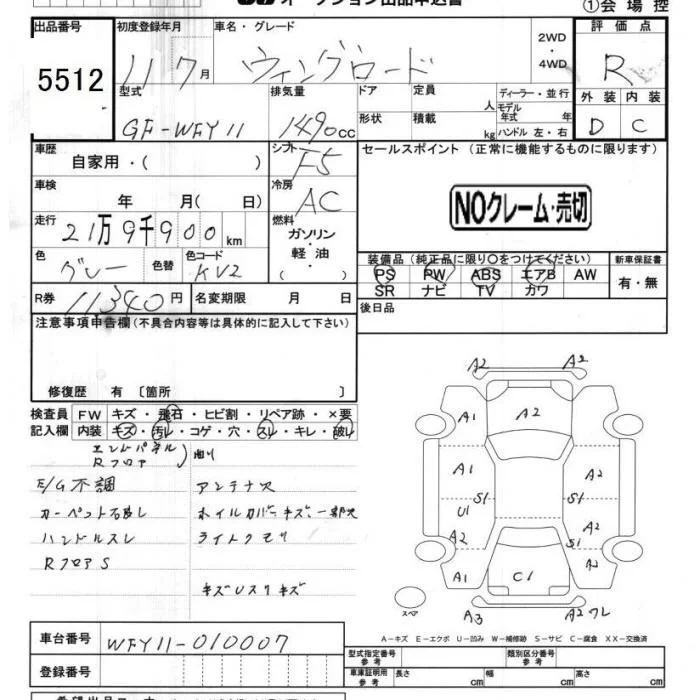 オークション出品申込書
①会場控
出品番号 初度登録年月 車名・グレード 評価点
5512 11 7月 ウィングロード 2WD・4WD R
型式 排気量 ドア 定員 ディーラー・並行 外装 内装
GF-WFY11 1490cc 人 モデル年式 年 D C
形状 積載 kg ハンドル 左・右
車歴 シフト セールスポイント (正常に機能するものに限ります)
自家用・( ) F5
車検 冷房
年 月( 日) AC
NOクレーム・売切
走行 燃料
21万9千900km ガソリン・軽油・( )
色 色替 色コード 装備品(純正品に限り〇をつけてください) 新車保証書
グレー KV2 PS PW ABS エアB AW 有・無
SR ナビ TV カワ
R券 11340円 名変期限 月 日 後日品
注意事項申告欄(不具合内容等は具体的に記入して下さい)
修復歴 有 〔箇所 〕
検査員 FW キズ・飛石・ヒビ割・リペア跡・×要
記入欄 内装 キズ・汚レ・コゲ・穴・スレ・キレ・破レ
エンドパネル
Rフロア
E/G不調 アンテナス
ホイルカバーキズ、一部欠
ハンドルスレ ライトクモリ
RフロアS
キズUスリキズ
A2 A2
A1 A2
A1 A2
U1 S1 S1
A2 A2
S1
A1 C1 A2
スペア A3 A2ワレ
A-キズ E-エクボ U-凹み W-補修跡 S-サビ C-腐食 XX-交換済
車台番号 WFY11-010007
型式指定番号 参考 類別区分番号 参考
登録番号 車庫証明用 参考 長さ cm 幅 cm 高さ cm